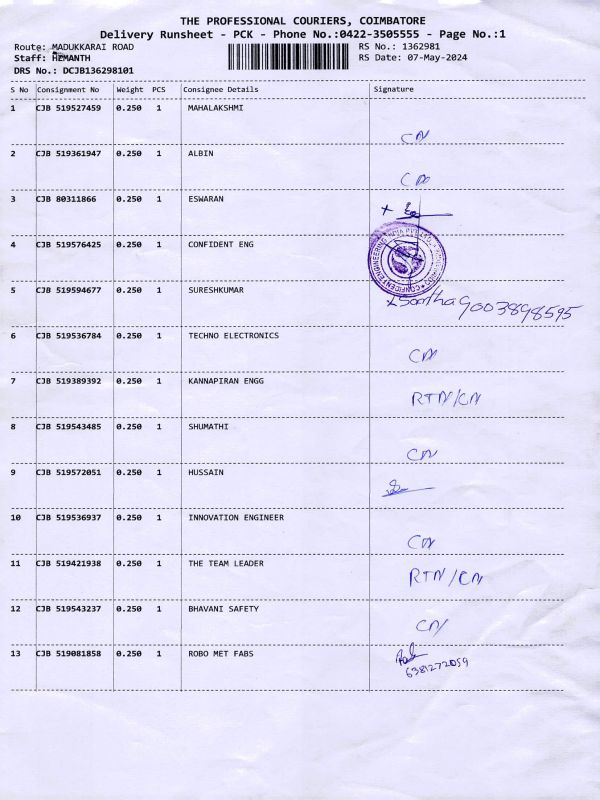 THE PROFESSIONAL COURIERS, COIMBATORE
Delivery Runsheet - PCK - Phone No.:0422-3505555 - Page No.:1
Route: MADUKKARAI ROAD RS No.: 1362981
Staff: HEMANTH RS Date: 07-May-2024
DRS No.: DCJB136298101
S No Consignment No Weight PCS Consignee Details Signature
1 CJB 519527459 0.250 1 MAHALAKSHMI
CN
2 CJB 519361947 0.250 1 ALBIN
CN
3 CJB 80311866 0.250 1 ESWARAN
4 CJB 519576425 0.250 1 CONFIDENT ENG
CONFIDENT ENGINEERING INDIA PVT LTD
5 CJB 519594677 0.250 1 SURESHKUMAR
9003898595
6 CJB 519536784 0.250 1 TECHNO ELECTRONICS
CN
7 CJB 519389392 0.250 1 KANNAPIRAN ENGG
RTN/CN
8 CJB 519543485 0.250 1 SHUMATHI
CN
9 CJB 519572051 0.250 1 HUSSAIN
10 CJB 519536937 0.250 1 INNOVATION ENGINEER
CN
11 CJB 519421938 0.250 1 THE TEAM LEADER
RTN/CN
12 CJB 519543237 0.250 1 BHAVANI SAFETY
CN
13 CJB 519081858 0.250 1 ROBO MET FABS
6381272059